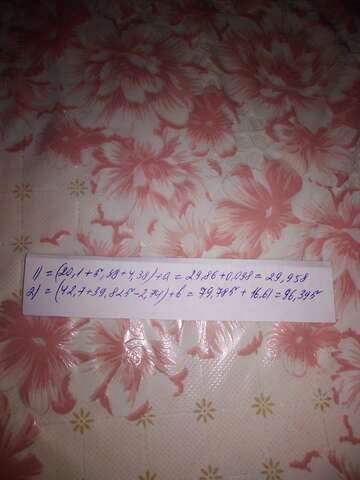 1) = (20,1 + 5,38 + 4,38) + a = 29,86 + 0,098 = 29,958
2) = (42,7 + 39,825 - 2,74) + b = 79,785 + 16,61 = 96,395